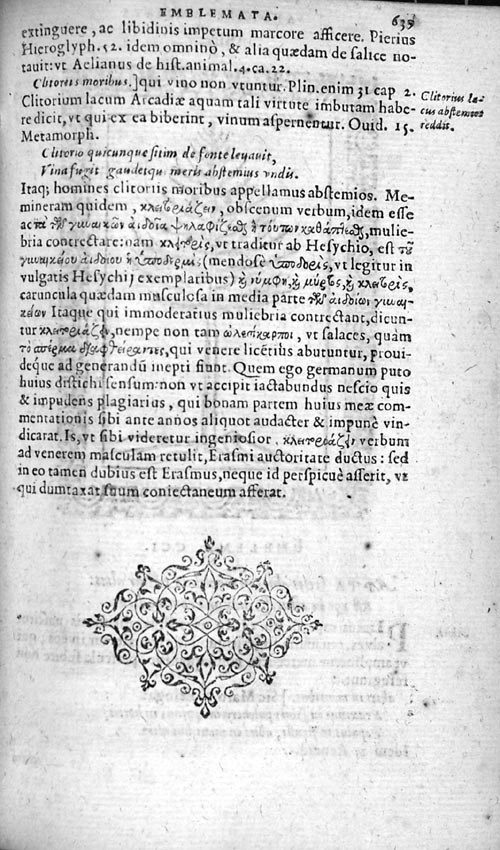 EMBLEMATA. 635
extinguere, ac libidinis impetum marcore afficere. Pierius
Hieroglyph. 52. idem omninò, & alia quædam de salice no-
tauit: vt Aelianus de hist. animal. 4. ca. 22.
Clitoris moribus.] qui vino non vtuntur. Plin. enim 31 cap 2.
Clitorium lacum Arcadiæ aquam tali virtute imbutam habe-
re dicit, vt qui ex ea biberint, vinum aspernentur. Ouid. 15.
Clitorius la-
cus abstemios
reddit.
Metamorph.
Clitorio quicunque sitim de fonte leuauit,
Vina fugit gaudetque meris abstemius vndis.
Itaq; homines clitoriis moribus appellamus abstemios. Me-
mineram quidem, κλειτοριάζειν, obscenum verbum, idem esse
ac τὰ τῶν γυναικῶν αἰδοῖα ψηλαφίζεσθαι ἢ τούτων καθάπτεσθαι, mulie-
bria contrectare: nam κλειτορὶς, vt traditur ab Hesychio, est τοῦ
γυναικείου αἰδοίου ἡ ὑποδερμὶς (mendosè ὑποδορὶς, vt legitur in
vulgatis Hesychij exemplaribus) ἢ νύμφη, ἢ μύρτος, ἢ κλειτορὶς,
caruncula quædam musculosa in media parte τῶν αἰδοίων γυναι-
κείων Itaque qui immoderatius muliebria contrectant, dicun-
tur κλειτοριάζειν, nempe non tam ὠλεσίκαρποι, vt salaces, quàm
τὸ σπέρμα διαφθείραντες, qui venere licétius abutuntur, proui-
déque ad generandū inepti fiunt. Quem ego germanum puto
huius distichi sensum: non vt accipit iactabundus nescio quis
& impudens plagiarius, qui bonam partem huius meæ com-
mentationis sibi ante annos aliquot audacter & impunè vin-
dicarat. Is, vt sibi videretur ingeniosior, κλειτοριάζειν verbum
ad venerem masculam retulit, Erasmi auctoritate ductus: sed
in eo tamen dubius est Erasmus, neque id perspicuè asserit, vt
qui dumtaxat suum coniectaneum afferat.